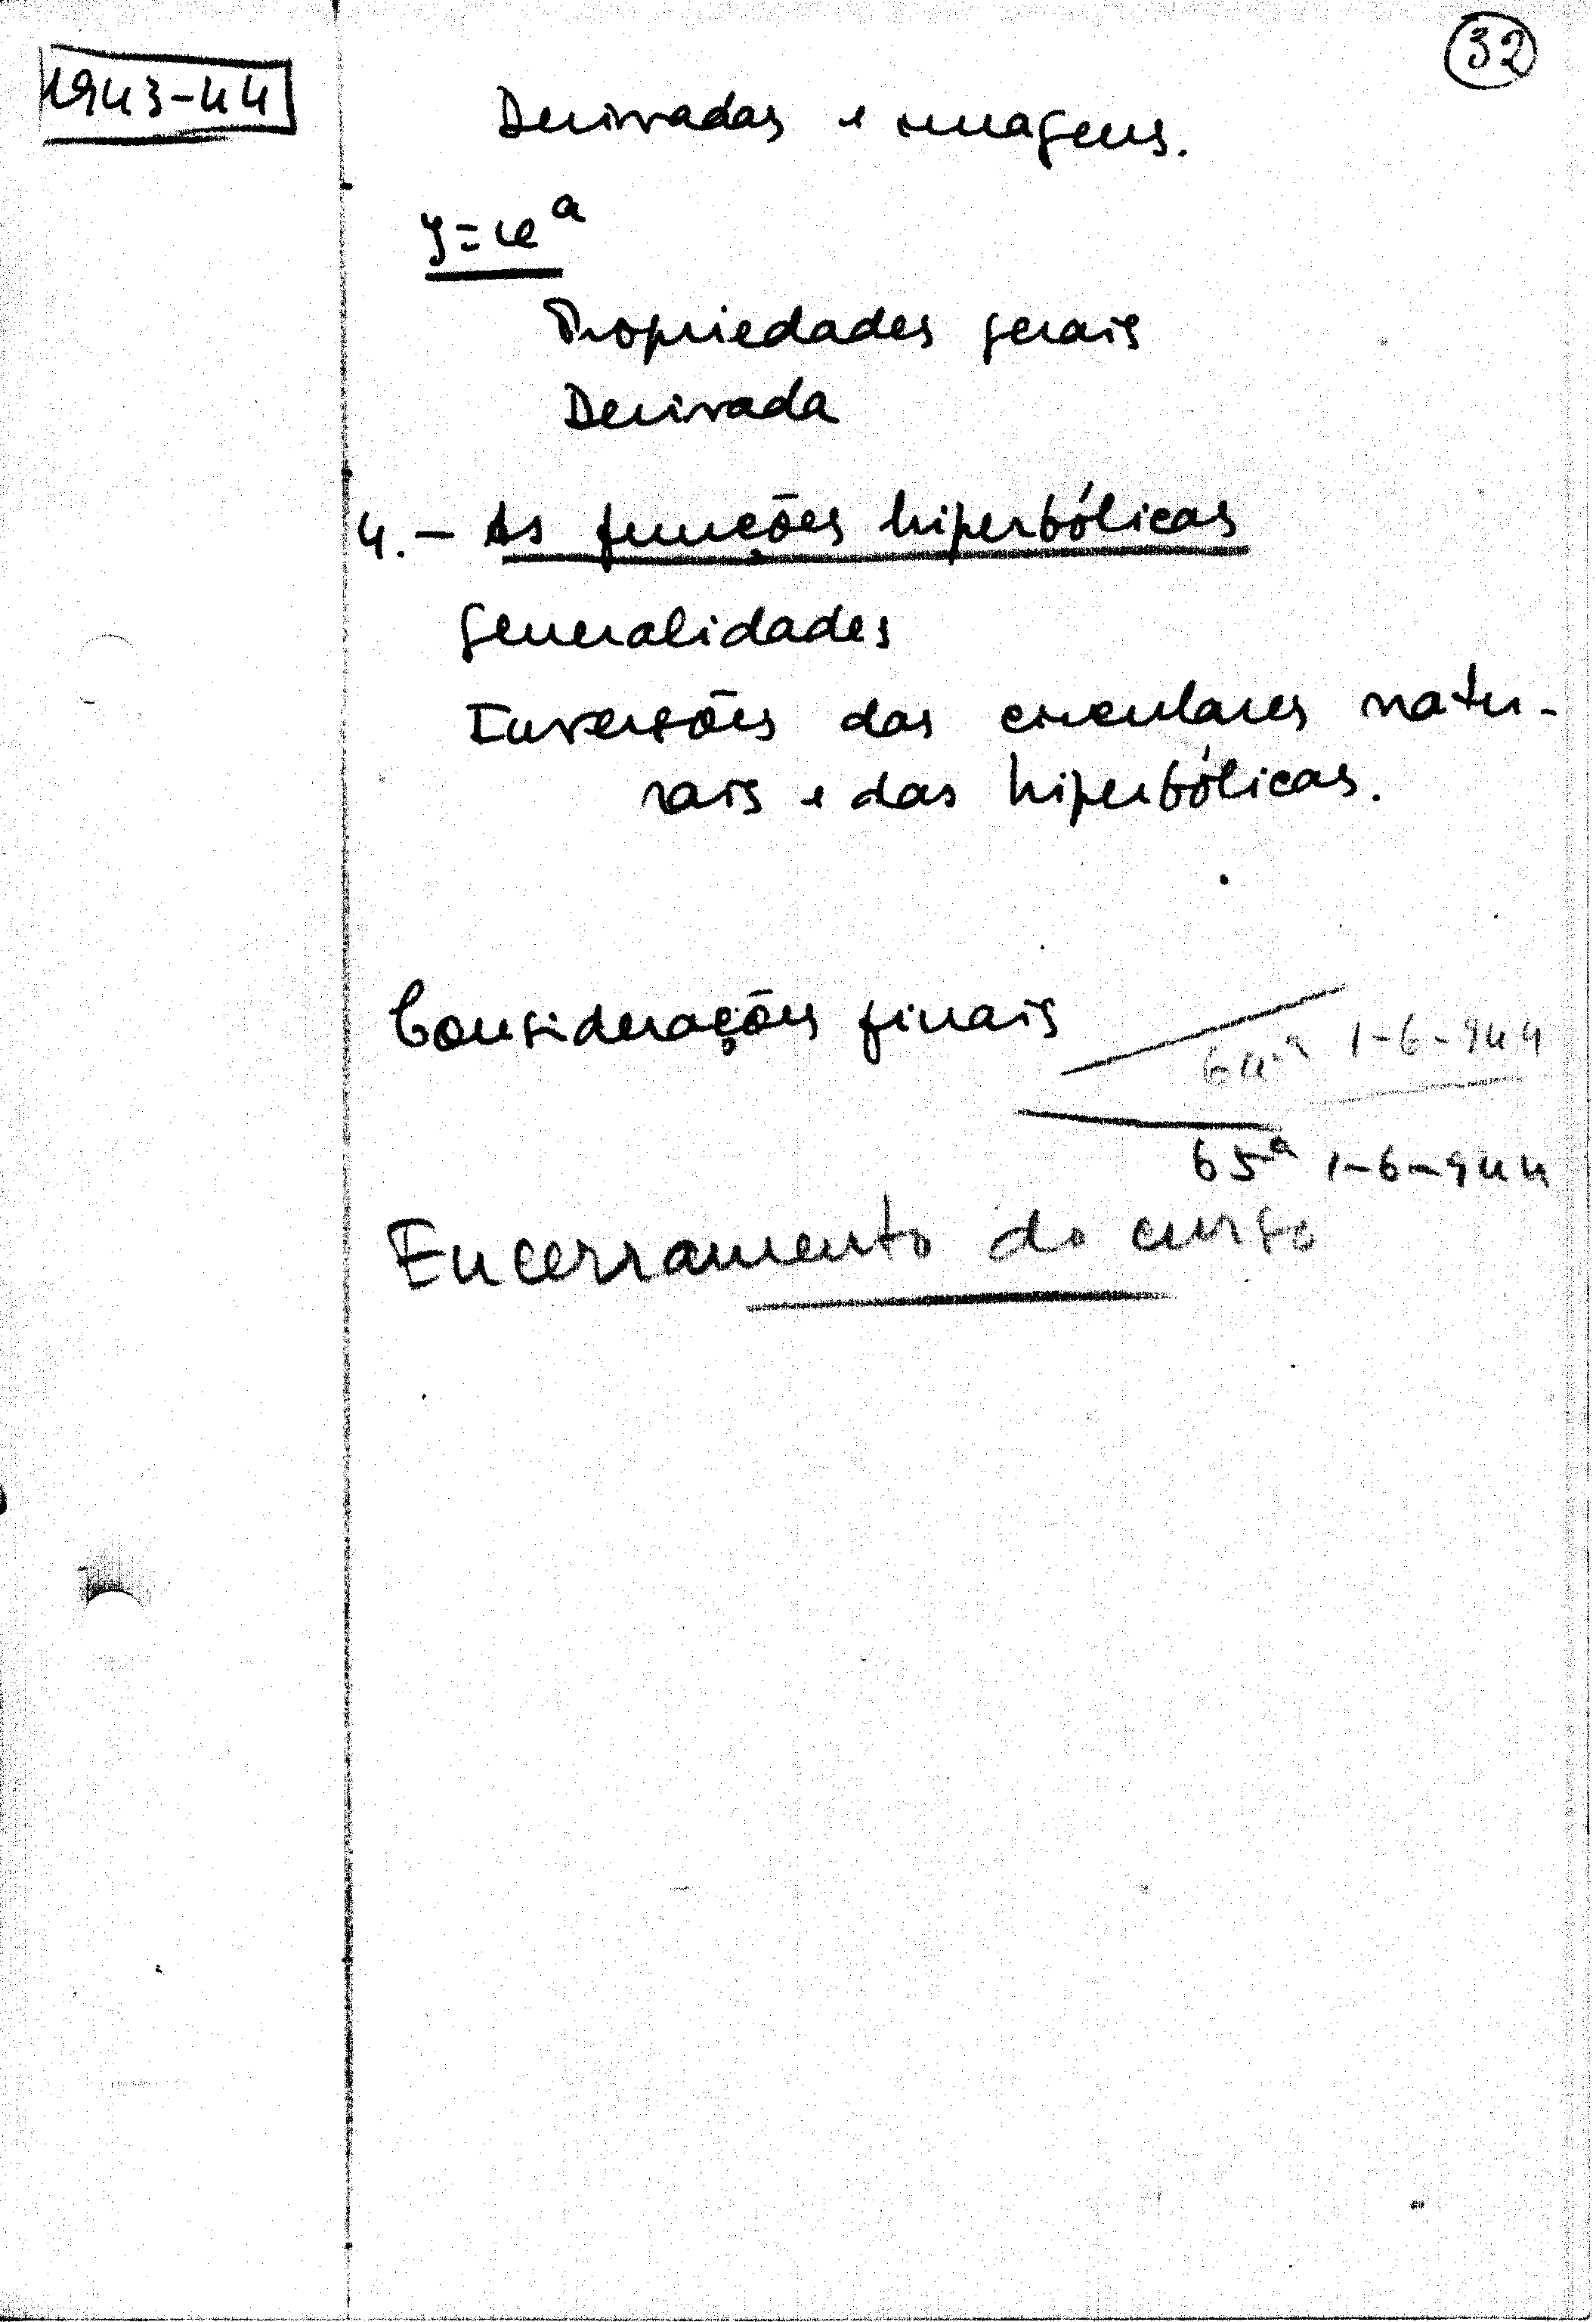 1943-44
32
Derivadas e imagens.
y = u^a
Propriedades gerais
Derivada
4. - As funções hiperbólicas
Generalidades
Inversões das circulares natu-
rais e das hiperbólicas.
Considerações finais
64.ª 1-6-944
65ª 1-6-944
Encerramento do curso